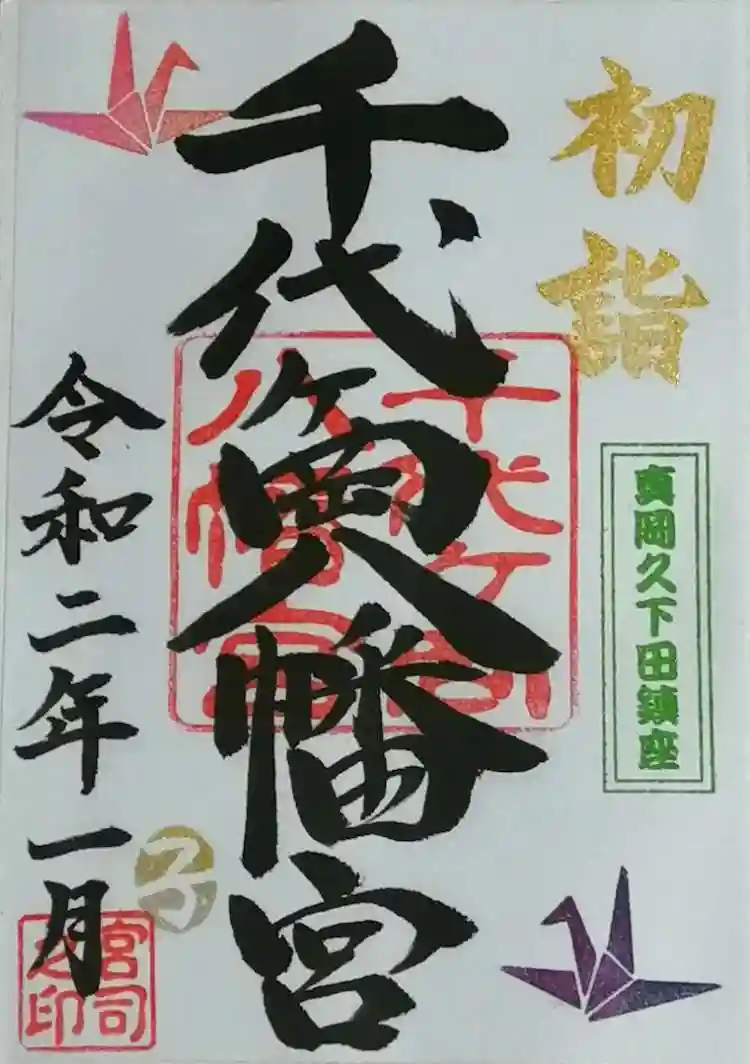 初詣
真岡久下田鎮座
千代ヶ岡八幡宮
千代ヶ岡八幡宮
令和二年一月
子
宮司之印